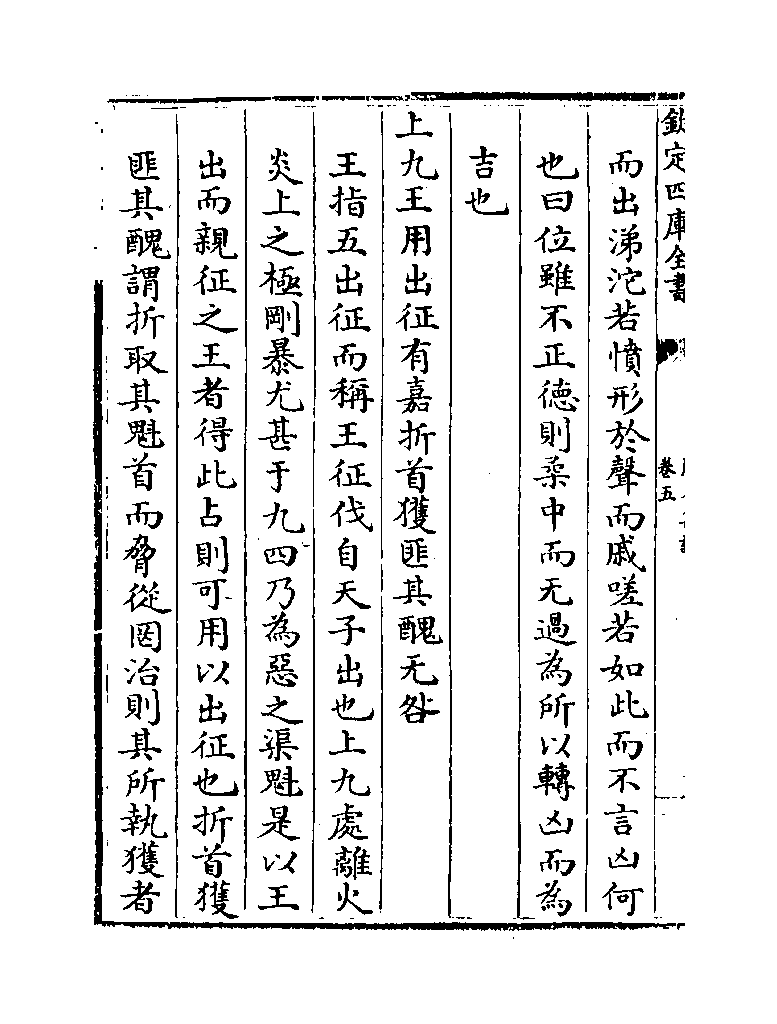 欽定四庫全書
卷五
而出涕沱若憤形於聲而戚嗟若如此而不言凶何
也曰位雖不正德則柔中而无過為所以轉凶而為
吉也
上九王用出征有嘉折首獲匪其醜无咎
王指五出征而稱王征伐自天子出也上九處離火
炎上之極剛暴尤甚于九四乃為惡之渠魁是以王
出而親征之王者得此占則可用以出征也折首獲
匪其醜謂折取其魁首而脅從罔治則其所執獲者